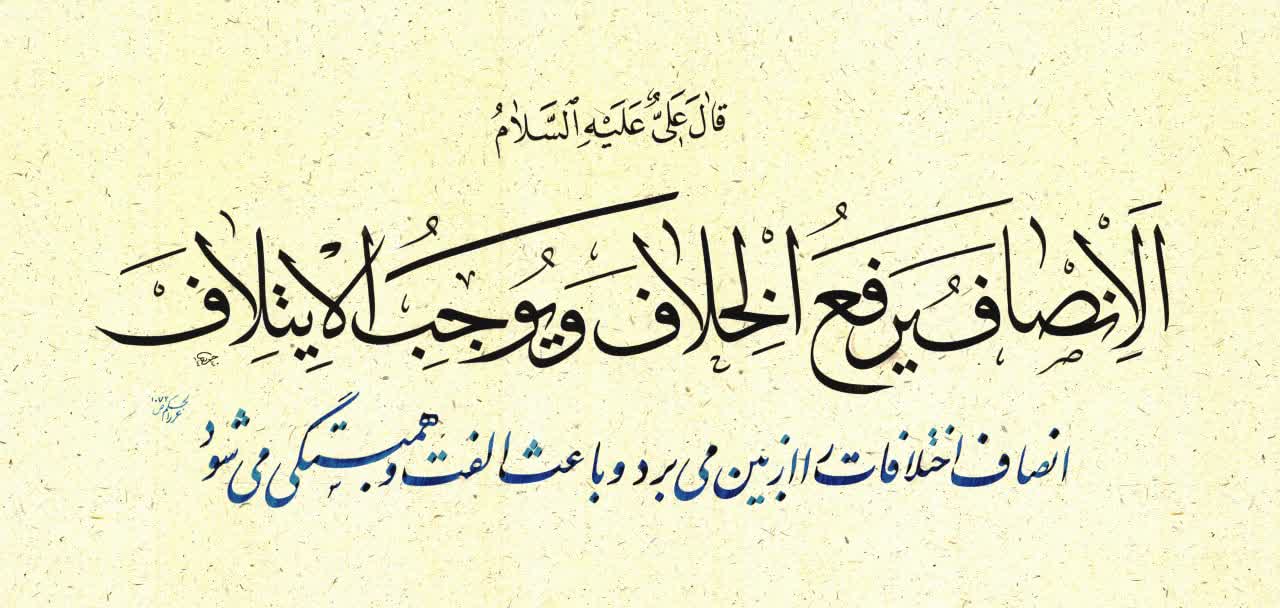 قالَ عَلِیٌّ عَلَیْهِ ٱلسَّلامُ
اَلْاِنْصافُ یَرْفَعُ الْخِلافَ وَ یُوجِبُ الْاِیتِلافَ
انصاف اختلافات را از بین می برد و باعث الفت و همبستگی می شود
غررالحکم